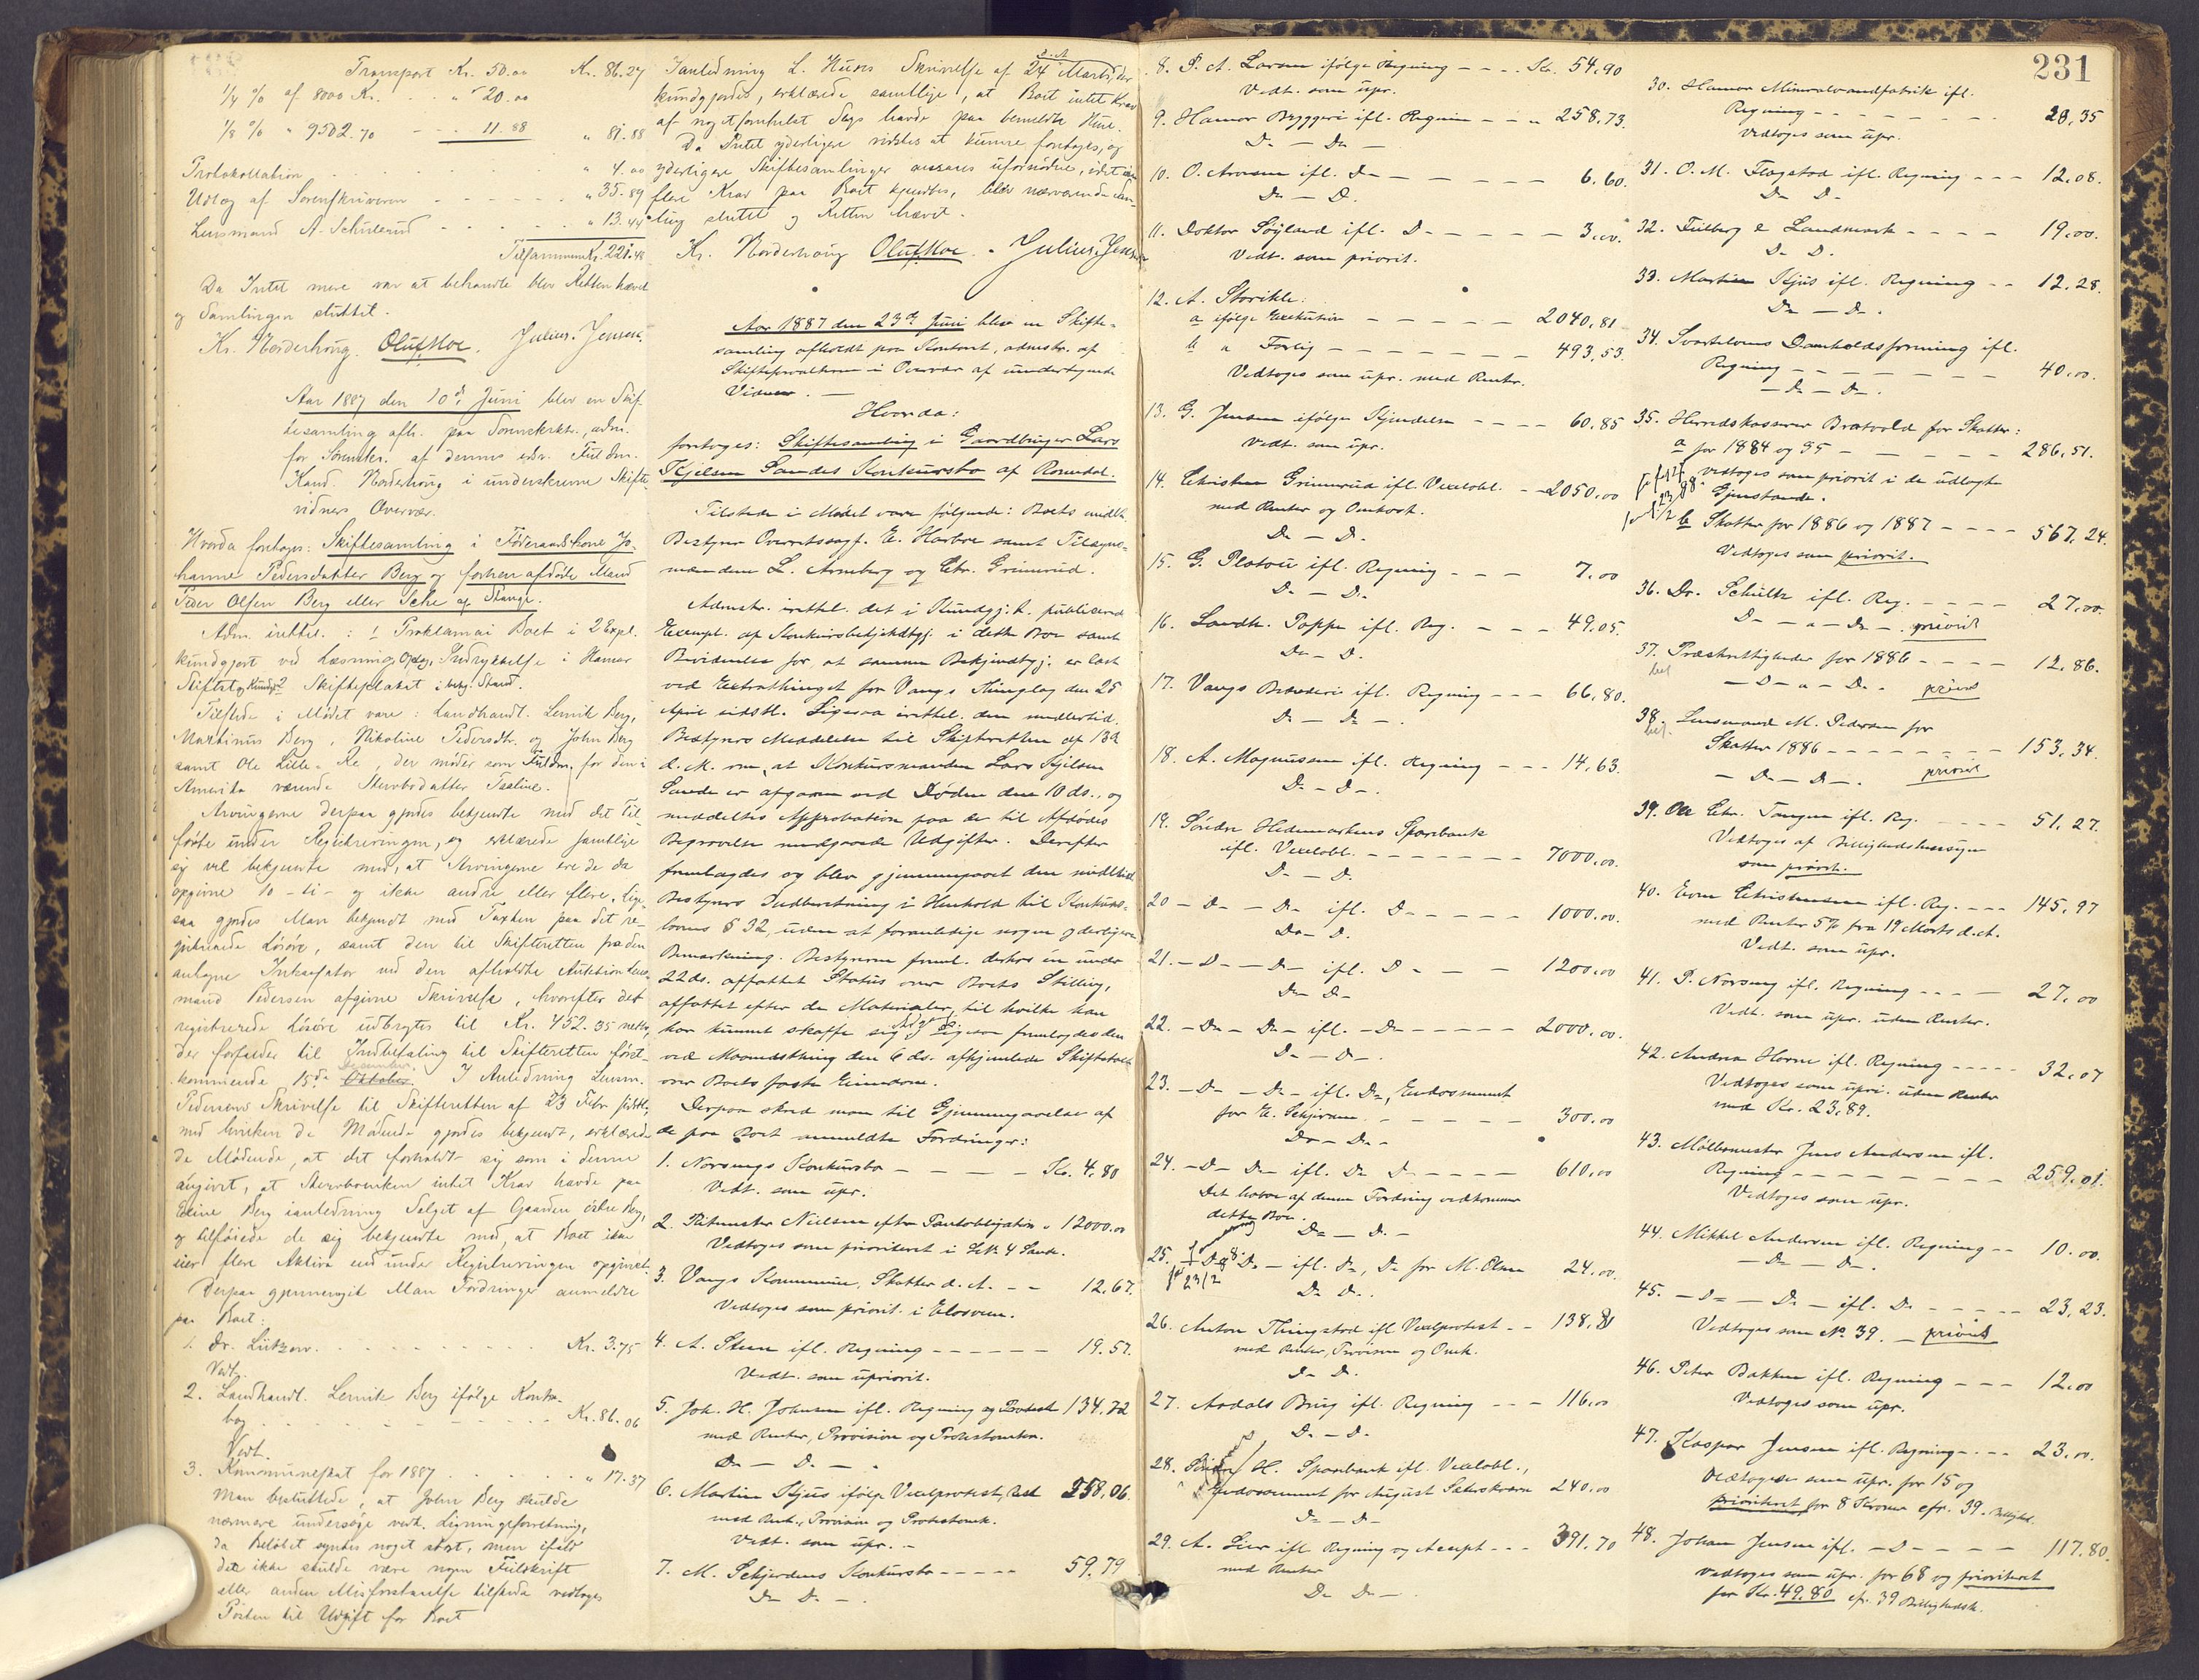 Transport Kr. 50.00 Kr. 86.27
1/4 % af 8000 Kr. . . " 20.00
1/8 % " 9502.70 - - - 11.88 " 81.88
Protokollation . . . . . . " 4.00
Udlæg af Sorenskriveren - - - - - " 35.89
Lensmand A. Schulerud - - - - . . " 13.44
Tilsammen Kr. 221.48
Da Intet mere var at behandle blev Retten hævet
og Samlingen sluttet.
Kr. Norderhoug. Oluf Moe. Julius Jensen.
Aar 1887 den 10de Juni blev en Skif-
tesamling afh. paa Sorenskrktr., adm.
for Sorenskr. af dennes edsv. Fuldm.
Kand. Norderhoug i underskrevne Skifte-
vidners Overvær.
Hvorda foretoges: Skiftesamling i Føderaadskone Jo-
hanne Pedersdatter Berg og forhen afdøde Mand
Peder Olsen Berg eller Sche af Stange.
Adm. irettel. : 1 Proklamai Boet i 2 Expl.
kundgjort ved Læsning og Indrykkelse i Hamar
Stiftst. Kundgj. 2 Skifteplakat i beh. Stand.
Tilstede i Mødet vare: Landhandl. Lernik Berg,
Martinus Berg, Nikoline Pedersdtr. og John Berg
samt Ole Lille-Re, der møder som Fuldm. for den i
Amerika værende Stervbodatter Pauline.
Arvingerne derpaa gjordes bekjendte med det Til-
førte under Registreringen, og erklærede samtlige
sig vel bekjendte med, at Arvingerne ere de da
opgivne 10 - ti - og ikke andre eller flere, lige-
saa gjordes Man bekjendt med Taxten paa det re-
gistrerede Løsøre, samt den til Skifteretten fra den
antagne Inkassator ved den afholdte Auktion Lens-
mand Pedersen afgivne Skrivelse, hvorefter det
registrerede Løsøre udbragtes til Kr. 452.35 netto,
der forfalder til Indbetaling til Skifteretten først-
kommende 15de Oktober. I Anledning Lensm.
Desember.
Pedersens Skrivelse til Skifteretten af 23 Febr sidstl.,
med hvilken de Mødende gjordes bekjendt, erklærede
de Mødende, at det forholdt sig som i denne
angivet, at Stervboenken intet Krav havde paa
Eline Berg ianledning Salget af Gaarden østre Berg,
og tilføiede de sig bekjendte med, at Boet ikke
eier flere Aktiva end under Registreringen opgivet.
Derpaa gjennemgik Man Fordringer anmeldte
paa Boet:
1. Dr. Lützow. . . . . . . . . . Kr. 3.75
Vedt.
2. Landhandl. Lernik Berg ifølge Kontra-
bog . . . . - - - - - . Kr. 86.06
Vedt.
3. Kommuneskat for 1887 . . . . . " 17.37
Man besluttede, at John Berg skulde
nærmere undersøge vedk. Ligningsforretning,
da Beløbet syntes noget stort, men ifald
det ikke skulde være nogen Feilskrift
eller anden Misforstaaelse tilstede vedtoges
Posten til Udgift for Boet
Ianledning L. Huses Skrivelse af 24 Marts d. A., der
kundgjordes, erklærede samtlige, at Boet intet Krav
af nogetsomhelst Slags havde paa bemeldte Huse.
Da Intet yderligere vidstes at kunne foretages, og
yderligere Skiftesamlinger ansaaes ufornødne, idet ei
flere Krav paa Boet kjendtes, blev nærværende Sam-
ling sluttet og Retten hævet.
Kr. Norderhoug Oluf Moe. - Julius Jensen
Aar 1887 den 23de Juni blev en Skifte-
samling afholdt paa Kontoret, admstr. af
Skifteforvalteren i Overvær af undertegnede
Vidner. -
Hvorda:
foretoges: Skiftesamling i Gaardbruger Lars
Kjelsen Sandes Konkursbo af Romedal.
Tilstede i Mødet vare følgende: Boets midlt.
Bestyrer Overretssagf. E. Harboe samt Tilsyns-
mændene L. Arneberg og Chr. Grimerud.
Admstr. irettel. det i Kundgj. t. publicerede
Exempl. af Konkursbekjendtgj. i dette Bo samt
Bevidnelse for, at samme Bekjendtgj. er læst
ved Extrathinget for Vangs Thinglag den 25
April sidstl. Ligesaa irettel. den midlertid.
Bestyrers Meddelelse til Skifteretten af 13de
d. M. om, at Konkursmanden Lars Kjelsen
Sande er afgaaen ved Døden den 10 ds., og
meddeltes Approbation paa de til Afdødes
Begravelse medgaaede Udgifter. Derefter
fremlagdes og blev gjennemgaaet den midlertid.
Bestyrers Indberetning i Henhold til Konkurs-
lovens § 32, uden at foranledige nogen yderligere
Bemærkning. Bestyreren freml. derhos en under
22 ds. affattet Status over Boets Stilling,
affattet efter de Materialer, til hvilke han
har kunnet skaffe sig Adg. Ligesaa fremlagdes den
ved Maanedsthing den 6 ds. afhjemlede Skiftetaxt
over Boets faste Eiendom.
Derpaa skred man til Gjennemgaaelse af
de paa Boet anmeldte Fordringer:
1. Norsengs Konkursbo - - - - - Kr. 4.80
Vedt. som upr.
2. Ritmester Nielsen efter Pantobligation " 12000.00
Vedtoges som prioriteret i Lit. 4 Sande.
3. Vangs Kommune, Skatter d. A. - - 12.67.
Vedtoges som priorit. i Elosveen.
4. A. Steen ifl. Regning - - - - - - 19.57.
Vedt. som upriorit.
5. Joh. H. Johnsen ifl. Regning og Protest 134.72
med Renter, Provision og Protestomk.
Do - Do - .
6. Martin Skjus ifølge Vexelprotest, Rest 258.06.
med Rent., Provision og Protestomk.
Vedt. som upr. -
7. M. Schjerdens Konkursbo - - - - - 59.79
Do Do - .
231
8. P. A. Larsen ifølge Regning - - - . Kr. 54.90
Vedt. som upr.
9. Hamar Bryggeri ifl. Regnin - - " 258.73.
Do - Do -
10. O. Arnesen ifl. Do - - - - - - 6.60.
Do - D.
11. Doktor Søyland ifl. D - - - - - 3.00.
Vedt. som priorit.
12. A. Storikle:
a ifølge Exekution - - - - - 2040.81
b " Forlig - - - - - - - 493.53.
Vedtoges som upr. med Renter.
13. G. Jensen ifølge Kjendelse - - - - 60.85
Vedt. som upr.
14. Christen Grimerud ifl. Vexelobl. - - 2050.00
med Renter og Omkost.
Do - D.
15. G. Platou ifl. Regning - - - 7.00
D. - D.
16. Landh. Poppe ifl. Reg. - - - 49.05.
Do - D.
17. Vangs Brænderi ifl. Regning - - - 66.80.
Do - Do - .
18. A. Magnussen ifl. Regning - - - 14.63.
Do - D - .
19. Søndre Hedemarkens Sparebank
ifl. Vexelobl. - - - - - - - 7000.00.
D. - D.
20 - Do - Do ifl. D - - - - - 1000.00.
Do - D.
21. - D - - D - ifl. D - - - 1200.00
Do D -
22. - Do - Do - ifl. - Do - - - - - 2000.00.
D. - D - .
23. - D - - Do - ifl. Do, Endossement
for E. Schjerven - - - - - 300.00
Do - Do -
24. - D - Do ifl. Do D - - - - 610.00
Det halve af denne Fordring vedkommer
dette Bo.
Do - D. -
25. - Do - Do - ifl. Do, Do for M. Olsen 24.00.
Do D. .
26. Anton Thingstad ifl. Vexelprotest - - 138.81
med Renter, Provision og Omk.
D - D.
27. Aadals Brug ifl. Regning - - - 116.00
D. - D.
28. Søndre H. Sparebank ifl. Vexelobl.,
Endossement for August Sæterskoren 240.00
Do - D -
29. A. Lier ifl. Regning og Accept - - - 391.70
med Renter
Do Do - .
30. Hamar Mineralvandfabrik ifl.
Regning - - - - - - - - 20.35
Vedtoges som upr.
31. O. M. Flagstad ifl. Regning - - - 12.08.
Do D -
32. Fulberg & Landmark - - - - 19.00.
Do D.
33. Martin Skjus ifl. Regning - - 12.28.
Do - Do .
34. Svartelvens Damholdsforening ifl.
Regning - - - - - - - - 40.00.
- Do - Do - .
35. Herredskasserer Bratvold for Skatter:
a for 1884 og 85 - - - - - 286.51.
vedtoges som priorit i de udlagte
Gjenstande.
b Skatter for 1886 og 1887 - - - - 567.24.
Vedtoges som priorit.
36. Dr. Schultz ifl. Reg. - - - - 27.00.
Do - " - Do - . priorit
37. Præsterettigheder for 1886 - - - - 12.86.
bet
- D - " - D. . priorit
38. Lensmand M. Pedersen for
bet.
Skatter 1886 - - - - - - - - 153.34.
- Do - Do - . priorit
39. Chr. Tangen ifl. Reg. - - - - 51.27.
Vedtoges af Billighedshensyn
som priorit.
40. Even Christensen ifl. Reg. - - - 145.97
med Renter 5% fra 19 Marts d. A.
Vedt. som upr.
41. P. Norseng ifl. Regning - - - - 27.00
Vedt. som upr. uden Renter.
42. Andrea Horne ifl. Regning - - - - - 32.07
Vedtoges som upri. uden Renter
med Kr. 23.89.
43. Møllebmester Jens Andersen ifl.
Regning - - - - - - - - - 259.01.
Vedtoges som upr.
44. Mikkel Andersen ifl. Regning - - 10.00.
- Do - Do - .
45. - Do - Do - ifl. Do - - - - - 23.23.
Vedtoges som No 39. - priorit
46. Peter Bakken ifl. Regning - - - 12.00
Vedtoges som upr.
47. Kaspar Jensen ifl. Regning - - - 23.00.
Vedtoges som upr. for 15 og
prioriteret for 8 Kroner cfr. 39. Billighed.
48. Johan Jensen ifl. - D - - - - 117.80.
vedtoges som upr. for 68 og prioriteret
for Kr. 49.80 cfr. 39 Billighedsh.